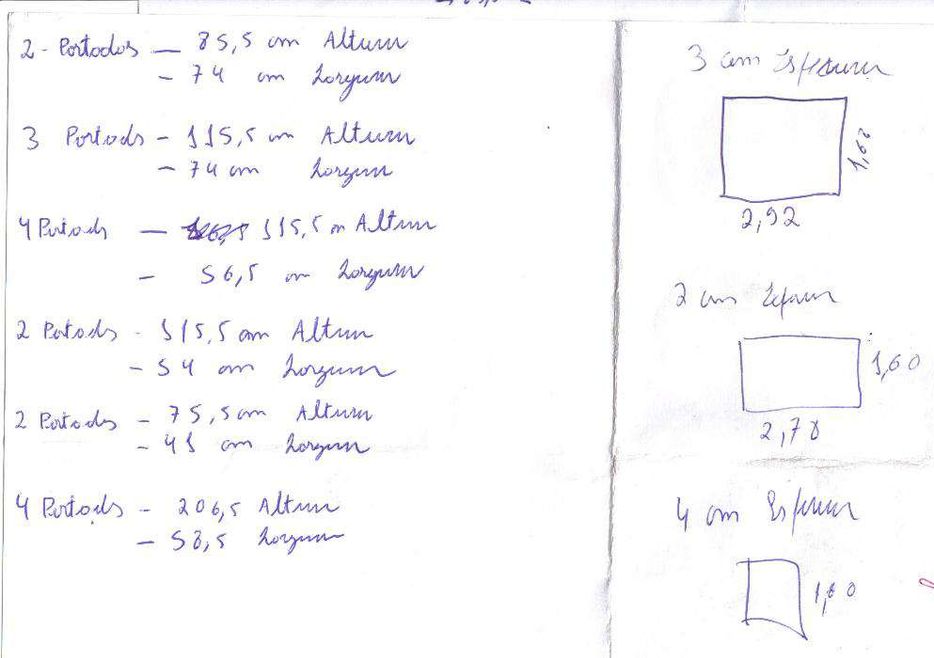 2 - Portadas — 85,5 cm Altura
- 74 cm Largura
3 Portads - 115,5 cm Altura
- 74 cm Largura
4 Portads — 115,5 cm Altura
- 56,5 cm Largura
2 Portads - 115,5 cm Altura
- 54 cm Largura
2 Portadas - 75,5 cm Altura
- 41 cm Largura
4 Portads - 206,5 Altura
- 58,5 Largura
3 cm Espesura
1,62
2,92
2 cm Espesura
1,60
2,78
4 cm Espesura
1,60